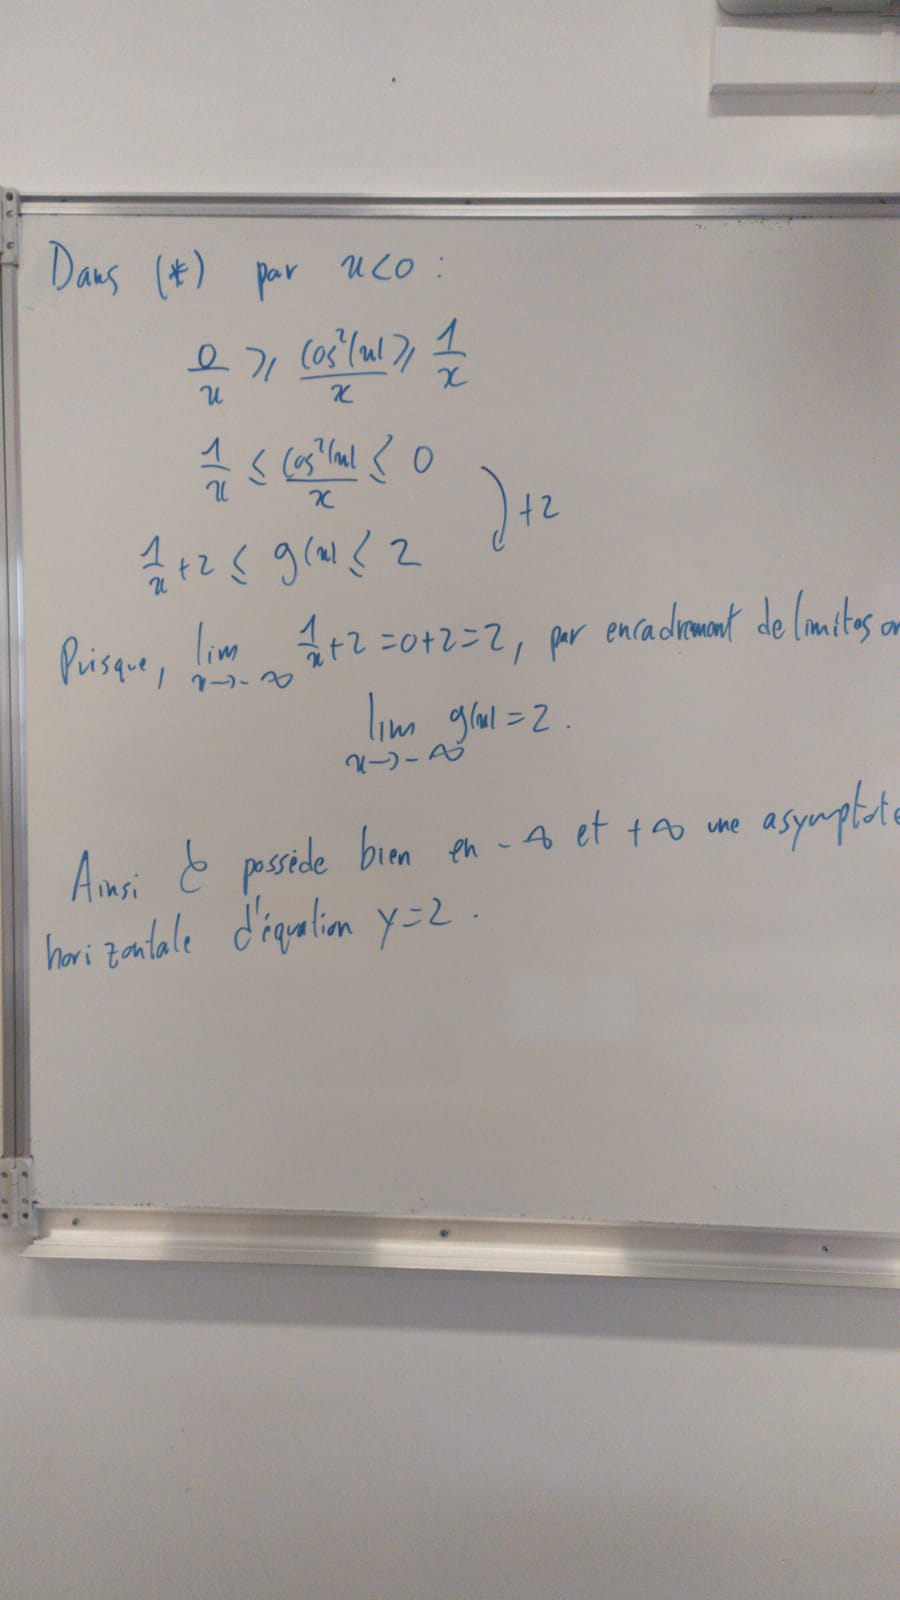 Dans (*) par x<0 :
0/x ⩾ cos²(x)/x ⩾ 1/x
1/x ≤ cos²(x)/x ≤ 0
+2
1/x +2 ≤ g(x) ≤ 2
Puisque, lim x→-∞ 1/x +2 =0+2=2, par encadrement de limites on
lim x→-∞ g(x) =2.
Ainsi 𝒞 possède bien en -∞ et +∞ une asymptote
horizontale d'équation y=2.